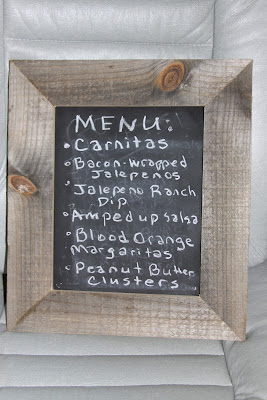 MENU:
• Carnitas
• Bacon-wrapped
Jalepeños
• Jalepeño Ranch
Dip
• Amped up salsa
• Blood Orange
Margaritas
• Peanut Butter
Clusters